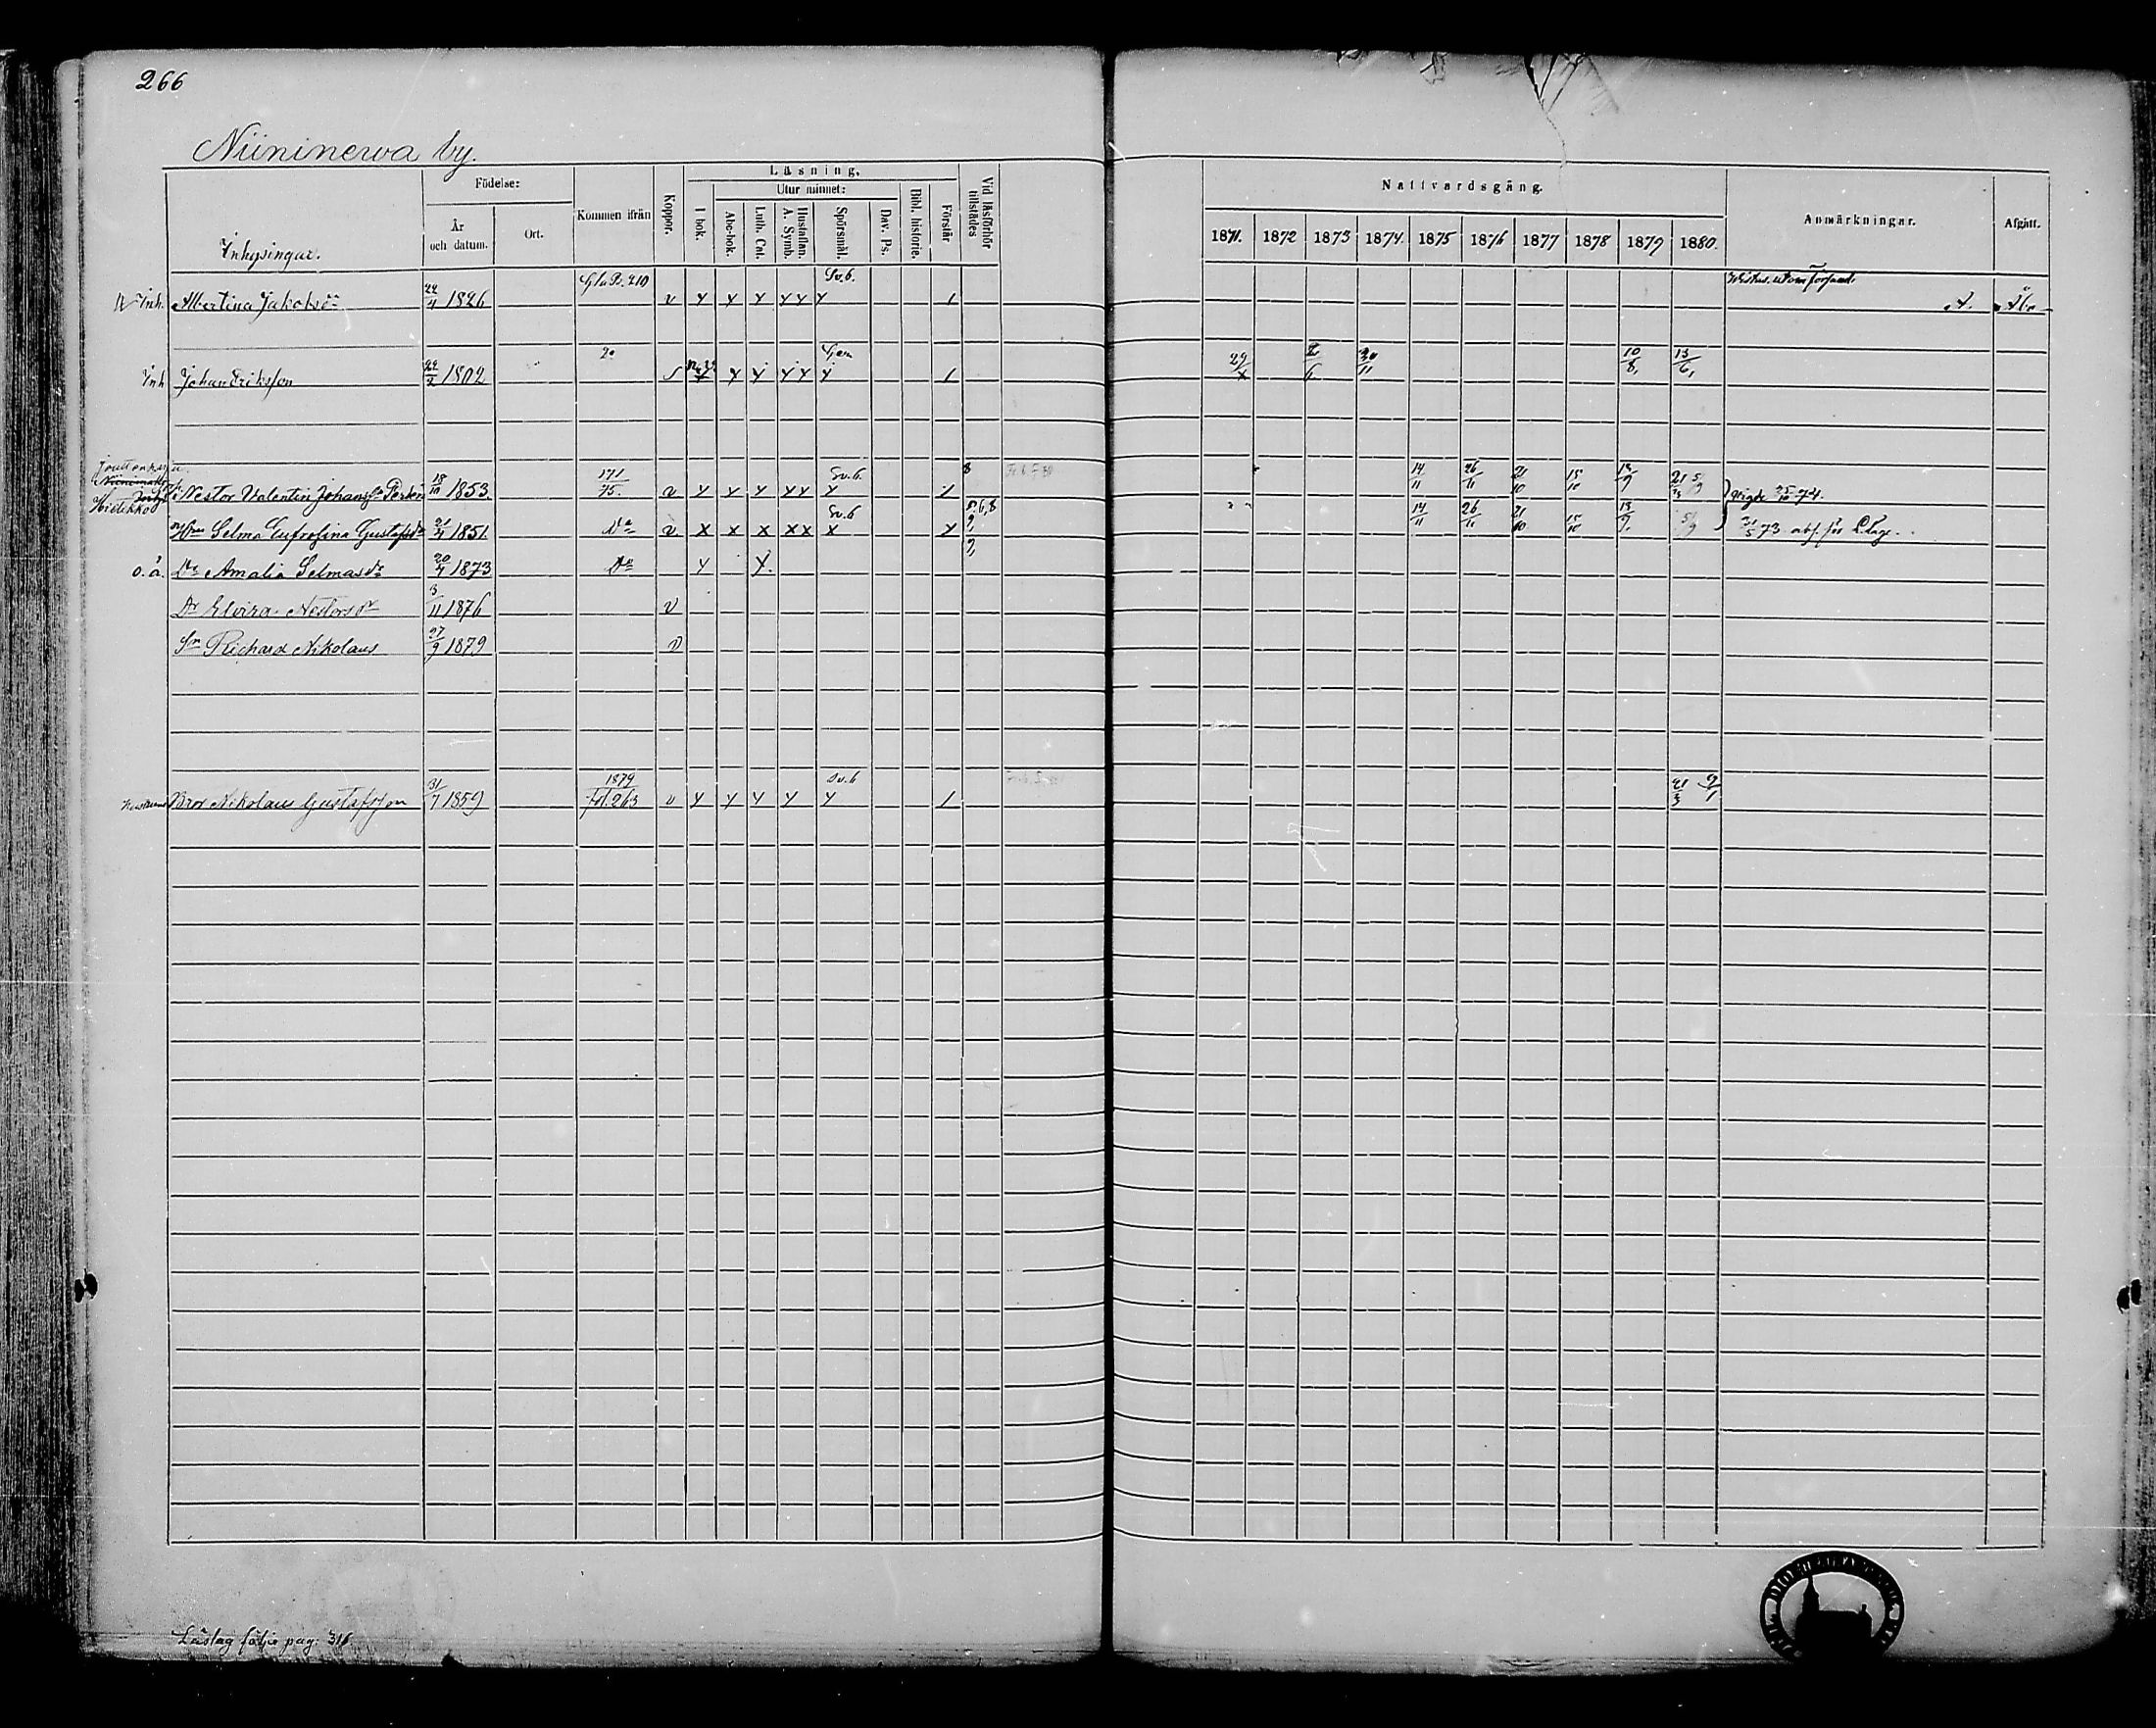 266
Niininerva by.
Inhysingar.
Födelse:
År och datum.
Ort.
Kommen ifrån
Koppor.
Läsning.
I bok.
Utur minnet:
Abc-bok.
Luth. Cat.
Hustaflan. A. Symb.
Spörsmål.
Dav. Ps.
Bibl. historie.
Förstår
Vid läsförhör tillstädes
Nattvardsgång.
1871. 1872 1873 1874. 1875 1876 1877 1878 1879 1880.
Anmärkningar.
Afgått.
Inh. Albertina Jakobsdr 22/4 1826 210 v y y y y y y Sv.b. 1
Inh Johan Eriksson 1802 y y y y y 1 29 30/11 10/8 13/6
Nestor Valentin Johansson 18/10 1853. 171/75. v y y y y y Sv.b. y 8 14/11 26/11 21/10 15/10 21/3 5/9 Vigde 74.
Hu Selma Eufrosina Gustafsdr 21/4 1851. Do v x x x x x x Sv.b y 5,6,8 9, 14/11 26/11 21/10 15/10 5/9 73 abs. för
o.ä. Dr Amalia Selmasdr 20/4 1873 Do y y. 9,
Dr Elvira Nestorsdr 3/11 1876 v
Sn Richard Nikolaus 27/9 1879 v
Bror Nikolaus Gustafsson 31/7 1859 1879 fol. 263 v y y y y y Sv.b 1 21/3 9/1
Läslag följa pag: 316